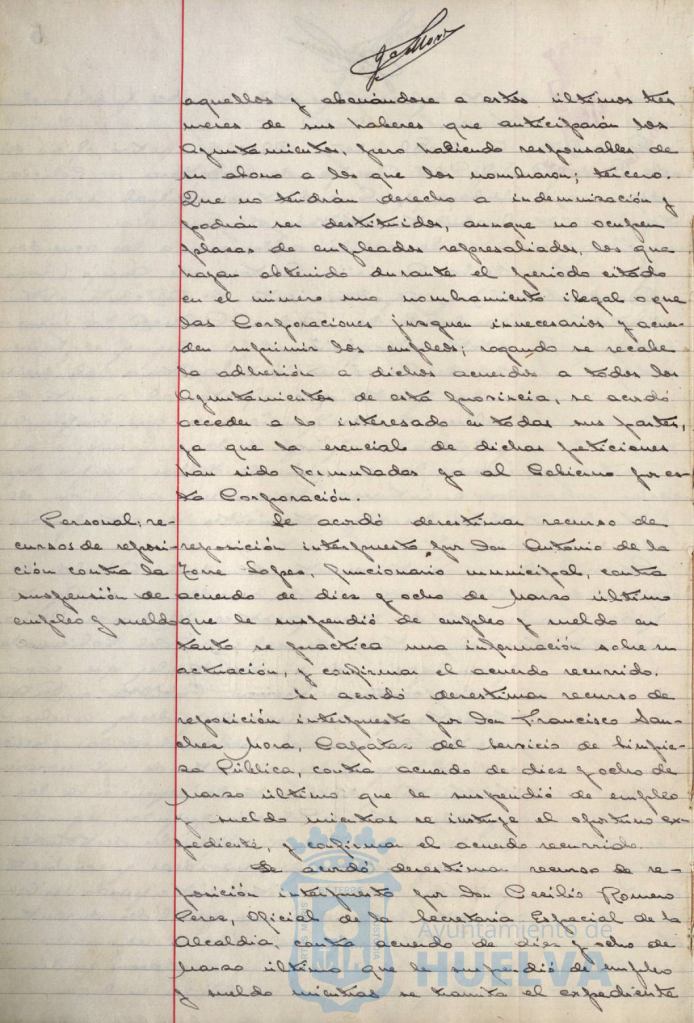 aquellos y abonándose a estos últimos tres
meses de sus haberes que anticiparán los
Ayuntamientos, pero haciendo responsables de
su abono a los que los nombraron; tercero.
Que no tendrán derecho a indemnización y
podrán ser destituidos, aunque no ocupen
plazas de empleados represaliados, los que
hayan obtenido durante el periodo citado
en el número uno nombramiento ilegal o que
las Corporaciones juzguen innecesarios y acuer-
den suprimir los empleos; rogando se recabe
la adhesión a dichos acuerdos a todos los
Ayuntamientos de esta provincia, se acordó
acceder a lo interesado en todas sus partes,
ya que la esencial de dichas peticiones
han sido formuladas ya al Gobierno por es-
ta Corporación.
Personal: re-
cursos de reposi-
ción contra la
suspensión de
empleo y sueldo
Se acordó desestimar recurso de
reposición interpuesto por Don Antonio de la
Torre López, funcionario municipal, contra
acuerdo de diez y ocho de Marzo último
que le suspendió de empleo y sueldo en
tanto se practica una información sobre su
actuación, y confirmar el acuerdo recurrido.
Se acordó desestimar recurso de
reposición interpuesto por Don Francisco Sán-
chez Mora, Capataz del Servicio de Limpie-
za Pública, contra acuerdo de diez y ocho de
Marzo último que le suspendió de empleo
y sueldo mientras se instruye el oportuno ex-
pediente, y confirmar el acuerdo recurrido.
Se acordó desestimar recurso de re-
posición interpuesto por Don Cecilio Romero
Pérez, Oficial de la Secretaría Especial de la
Alcaldía, contra acuerdo de diez y ocho de
Marzo último que le suspendió de empleo
y sueldo mientras se tramita el expediente
Ayuntamiento de
HUELVA